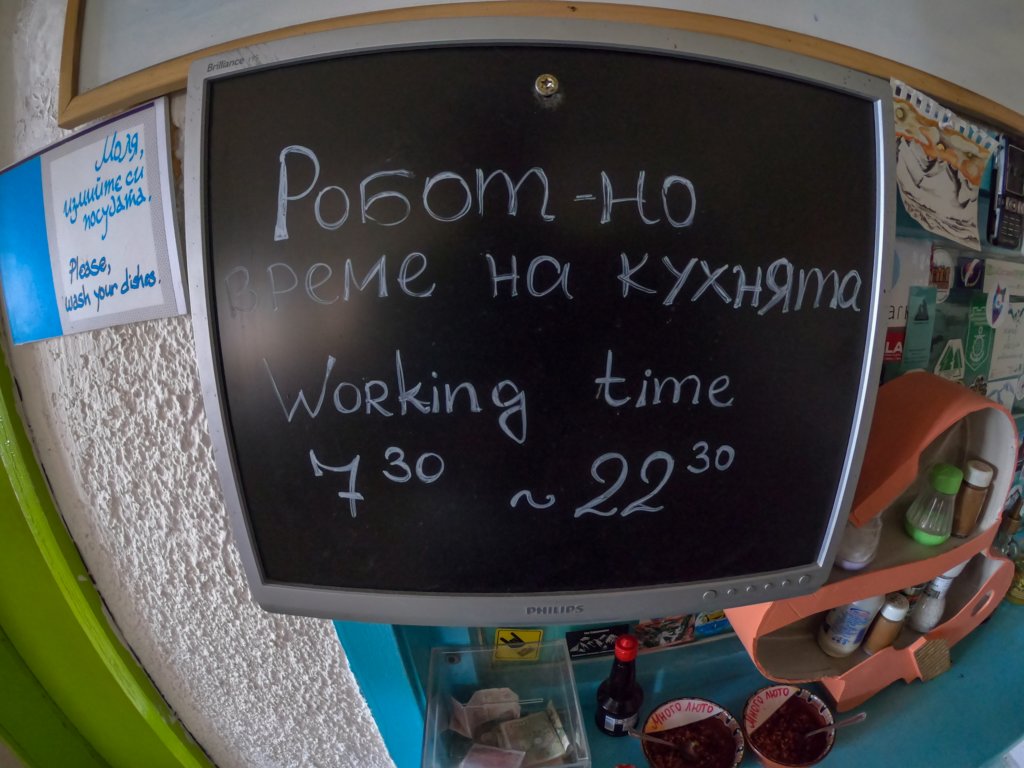 Brilliance
Моля,
измийте си
посудата.
Please,
wash your dishes.
Робот-но
време на кухнята
Working time
7³⁰ ~ 22³⁰
PHILIPS
МНОГО ЛЮТО
МНОГО ЛЮТО